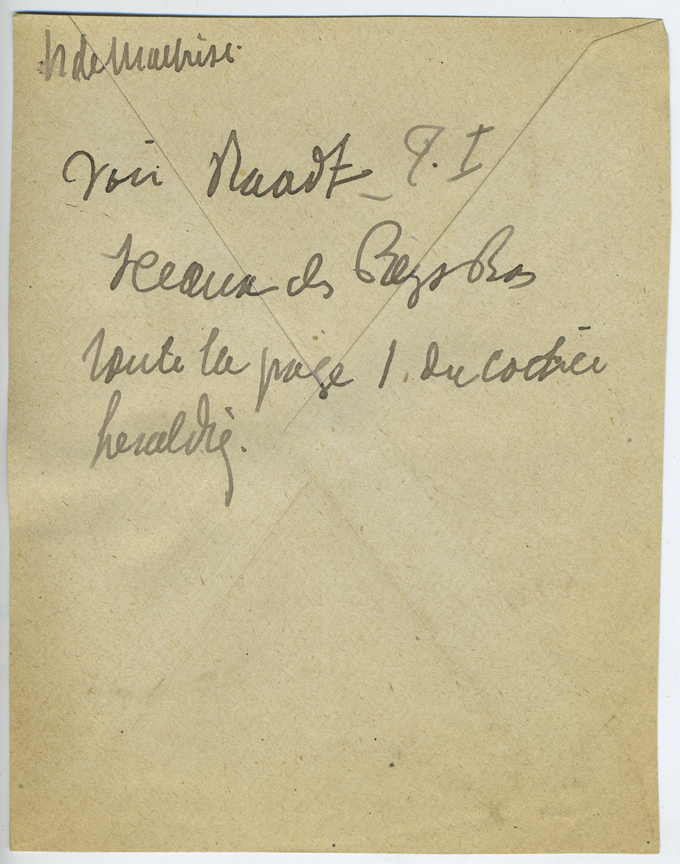 de
Voir Raadt - T. I
Sceaux des Pays Bas
toute la page 1. du
heraldiq.